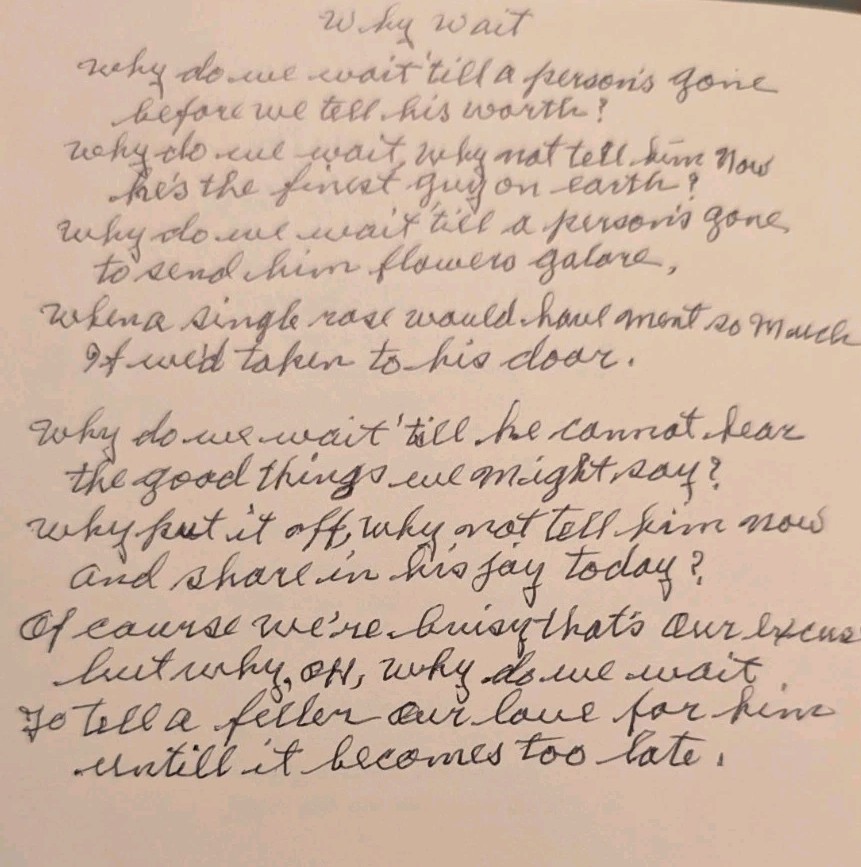 Why Wait
Why do we wait 'till a person's gone
before we tell his worth?
Why do we wait, why not tell him now
he's the finest guy on earth?
Why do we wait 'till a person's gone
to send him flowers galore,
When a single rose would have ment so much
If we'd taken to his door.
Why do we wait 'till he cannot hear
the good things we might say?
Why put it off, why not tell him now
and share in his joy today?
Of course we're buisy that's our excus
but why, oh, why do we wait
To tell a feller our love for him
untill it becomes too late.